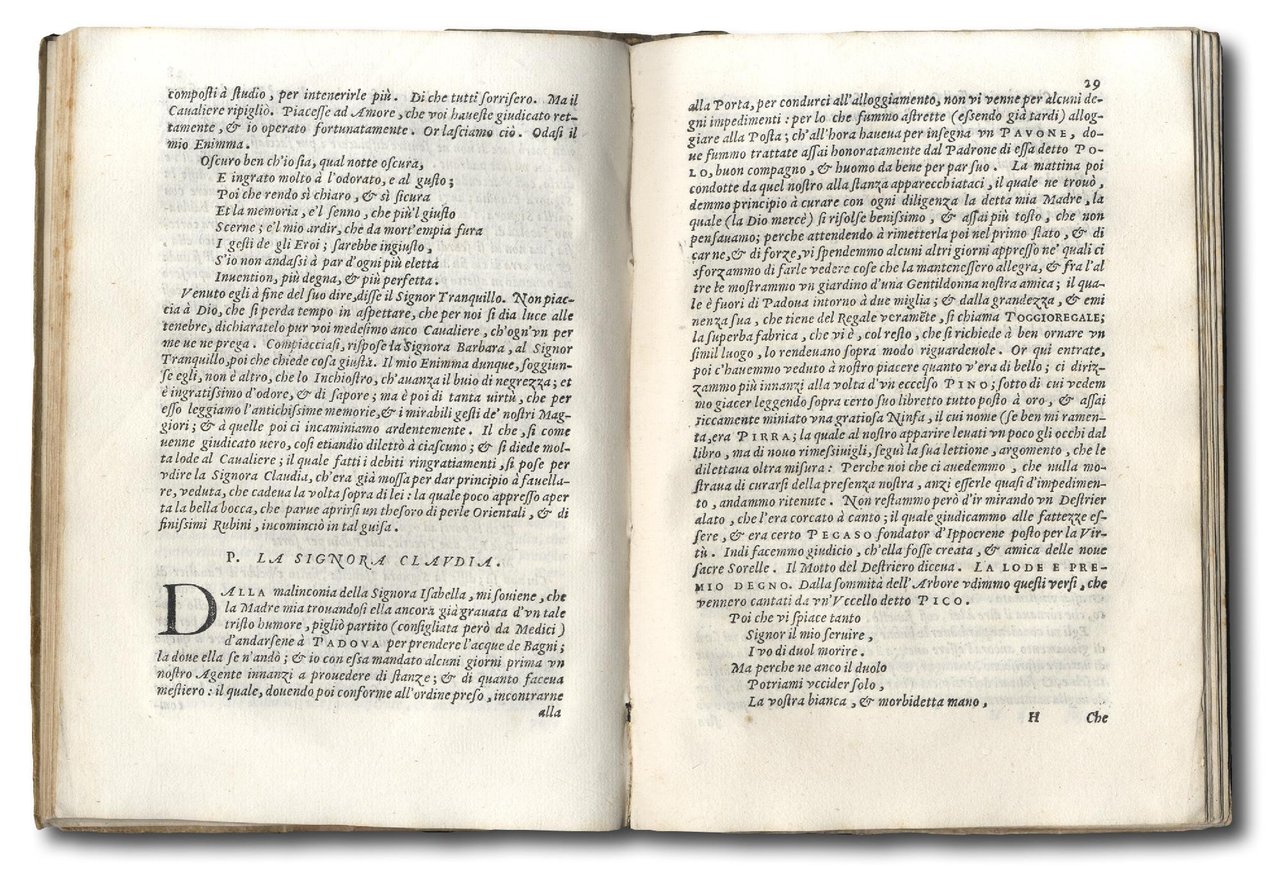 composti à studio, per intenerirle più. Di che tutti sorrisero. Ma il
Caualiere ripigliò. Piacesse ad Amore, che voi haueste giudicato ret-
tamente, & io operato fortunatamente. Or lasciamo ciò. Odasi il
mio Enimma.
Oscuro ben ch'io sia, qual notte oscura,
E ingrato molto à l'odorato, e al gusto;
Poi che rendo sì chiaro, & sì sicura
Et la memoria, e'l senno, che più'l giusto
Scerne; e'l mio ardir, che da mort'empia fura
I gesti de gli Eroi; sarebbe ingiusto,
S'io non andassi à par d'ogni più eletta
Inuention, più degna, & più perfetta.
Venuto egli à fine del suo dire, disse il Signor Tranquillo. Non piac-
cia à Dio, che si perda tempo in aspettare, che per noi si dia luce alle
tenebre, dichiaratelo pur voi medesimo anco Caualiere, ch'ogn'vn per
me ue ne prega. Compiacciasi, rispose la Signora Barbara, al Signor
Tranquillo, poi che chiede cosa giusta. Il mio Enimma dunque, soggiun-
se egli, non è altro, che lo Inchiostro, ch'auanza il buio di negrezza; et
è ingratissimo d'odore, & di sapore; ma è poi di tanta uirtù, che per
esso leggiamo l'antichissime memorie, & i mirabili gesti de' nostri Mag-
giori; & à quelle poi ci incaminiamo ardentemente. Il che, si come
uenne giudicato uero, così etiandio dilettò à ciascuno; & si diede mol-
ta lode al Caualiere; il quale fatti i debiti ringratiamenti, si pose per
vdire la Signora Claudia, ch'era già mossa per dar principio à fauella-
re, veduta, che cadeua la volta sopra di lei: la quale poco appresso aper
ta la bella bocca, che parue aprirsi vn thesoro di perle Orientali, & di
finissimi Rubini, incominciò in tal guisa.
P. LA SIGNORA CLAVDIA.
DALLA malinconia della Signora Isabella, mi souiene, che
la Madre mia trouandosi ella ancora già grauata d'vn tale
tristo humore, pigliò partito (consigliata però da Medici)
d'andarsene à PADOVA per prendere l'acque de Bagni;
la doue ella se n'andò; & io con essa mandato alcuni giorni prima vn
nostro Agente innanzi a prouedere di stanze; & di quanto faceua
mestiero: il quale, douendo poi conforme all'ordine preso, incontrarne
alla
29
alla Porta, per condurci all'alloggiamento, non vi venne per alcuni de-
gni impedimenti: per lo che fummo astrette (essendo già tardi) allog-
giare alla Posta; ch'all'hora haueua per insegna vn PAVONE, do-
ue fummo trattate assai honoratamente dal Padrone di essa detto PO-
LO, buon compagno, & huomo da bene per par suo. La mattina poi
condotte da quel nostro alla stanza apparecchiataci, il quale ne trouò,
demmo principio à curare con ogni diligenza la detta mia Madre, la
quale (la Dio mercè) si risolse benissimo, & assai più tosto, che non
pensauamo; perche attendendo à rimetterla poi nel primo stato, & di
carne, & di forze, vi spendemmo alcuni altri giorni appresso ne' quali ci
sforzammo di farle vedere cose che la mantenessero allegra, & fra l'al
tre le mostrammo vn giardino d'una Gentildonna nostra amica; il qua-
le è fuori di Padoua intorno à due miglia; & dalla grandezza, & emi
nenza sua, che tiene del Regale veramẽte, si chiama POGGIOREGALE;
la superba fabrica, che vi è, col resto, che si richiede à ben ornare vn
simil luogo, lo rendeuano sopra modo riguardeuole. Or qui entrate,
poi c'hauemmo veduto à nostro piacere quanto v'era di bello; ci diriz-
zammo più innanzi alla volta d'vn eccelso PINO; sotto di cui vedem
mo giacer leggendo sopra certo suo libretto tutto posto à oro, & assai
riccamente miniato vna gratiosa Ninfa, il cui nome (se ben mi ramen-
ta, era PIRRA; la quale al nostro apparire leuati vn poco gli occhi dal
libro, ma di nouo rimessiuigli, seguì la sua lettione, argomento, che le
dilettaua oltra misura: Perche noi che ci auedemmo, che nulla mo-
straua di curarsi della presenza nostra, anzi esserle quasi d'impedimen-
to, andammo ritenute. Non restammo però d'ir mirando vn Destrier
alato, che l'era corcato à canto; il quale giudicammo alle fattezze es-
sere, & era certo PEGASO fondator d'Ippocrene posto per la Vir-
tù. Indi facemmo giudicio, ch'ella fosse creata, & amica delle noue
sacre Sorelle. Il Motto del Destriero diceua. LA LODE E PRE-
MIO DEGNO. Dalla sommità dell'Arbore vdimmo questi versi, che
vennero cantati da vn'Vccello detto PICO.
Poi che vi spiace tanto
Signor il mio seruire,
I vo di duol morire.
Ma perche ne anco il duolo
Potriami vccider solo,
La vostra bianca, & morbidetta mano,
H Che